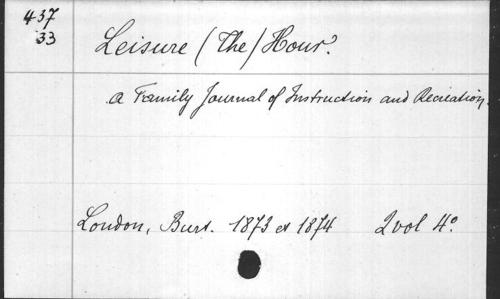 437
33
Leisure (The) Hour.
a Family Journal of Instruction and Recreation.
London, Burt. 1873 et 1874 2 vol 4º